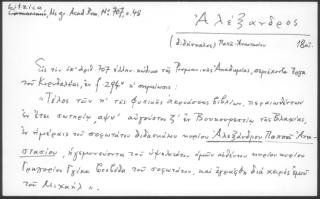 Litzica
Ms gr. Acad. Rom. Nο 707, σ. 48
Ἀλέξανδρος
(διδάσκαλος) Παπᾶ-Ἀναστασίου 18αι.
Εἰς τὸν ὑπ' ἀριθ. 707 ἑλλην. κώδικα τῆς Ρουμανικῆς Ἀκαδημίας, περιέχοντα ἔργα
τοῦ Κορυδαλέως, ἐν f. 294ν σημείωσις:
"Τέλος τῶν π' τῆς φυσικῆς ἀκροάσεως βιβλίων, περαιωθέντων
ἐν ἔτει σωτηρίῳ, αψν' αὐγούστου ζ' ἐν Βουκουρεστίῳ τῆς Βλαχίας,
ἐν ἡμέραις τοῦ σοφωτάτου διδασκάλου κυρίου Ἀλεξάνδρου Παπᾶ Ἀνα-
στασίου, ἡγεμονεύοντος τοῦ ὑψηλοτάτου ἡμῶν αὐθέντου κυρίου κυρίου
Γρηγορίου Γκίκα Βοεβόδα τοῦ σοφωτάτου, καὶ ἐγράφθη διὰ χειρὸς ἐμοῦ
τοῦ Μιχαὴλ".